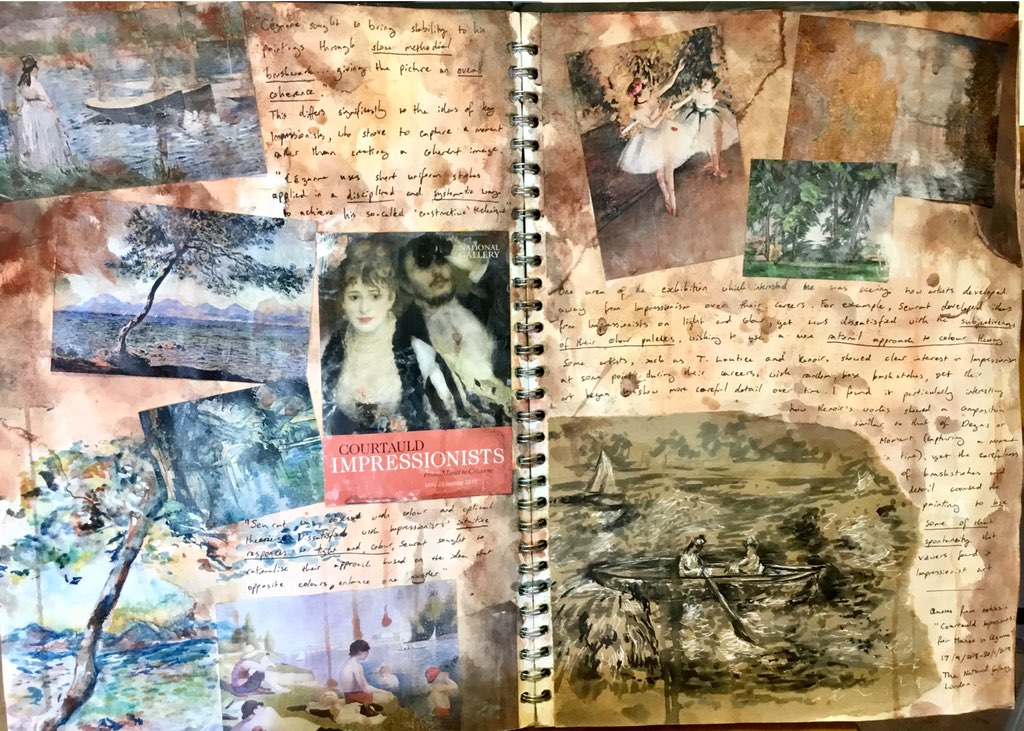 "Cézanne sought to bring stability to his
paintings through slow methodial
brushwork... giving the picture an overall
coherence."
This differs significantly to the ideas of key
Impressionists, who strove to capture a moment
rather than creating a coherent image.
"Cézanne uses short uniform strokes
applied in a disciplined and systematic way
to achieve his so-called 'constructive' technique"
THE
NATIONAL
GALLERY
COURTAULD
IMPRESSIONISTS
From Manet to Cézanne
Until 20 January 2019
"Seurat was obsessed with colour and optical
theories. Dissatisfied with Impressionists' intuitive
responses to light and colour Seurat sought to
rationalise their approach based on the idea that
opposite colours enhance one another"
One area of the exhibition which interested me was seeing how artists developed
away from Impressionism over their careers. For example, Seurat developed ideas
from Impressionists on light and colour, yet was dissatisfied with the subjectiveness
of their colour palettes, wishing to use a more rational approach to colour theory.
Some artists, such as T. Lautrec and Renoir, showed clear interest in Impressionism
at some point during their careers, with random loose brushstrokes, yet their
art began to show more careful detail over time. I found it particularly interesting
how Renoir's works showed a composition
similar to that of Degas or
Monet (capturing a moment
in time), yet the carefulness
of brushstrokes and
detail caused the
painting to lose
some of that
spontaneity that
viewers found in
Impressionist art
from exhibition
"Courtauld Impressionists
from Manet to Cézanne
17/9/2018-20/1/2019
The National Gallery
London.